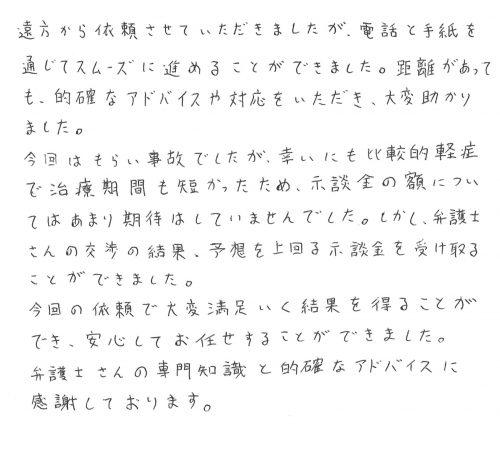 遠方から依頼させていただきましたが、電話と手紙を
通じてスムーズに進めることができました。距離があって
も、的確なアドバイスや対応をいただき、大変助かり
ました。
今回はもらい事故でしたが、幸いにも比較的軽症
で治療期間も短かったため、示談金の額につい
てはあまり期待はしていませんでした。しかし、弁護士
さんの交渉の結果、予想を上回る示談金を受け取る
ことができました。
今回の依頼で大変満足いく結果を得ることが
でき、安心してお任せすることができました。
弁護士さんの専門知識と的確なアドバイスに
感謝しております。